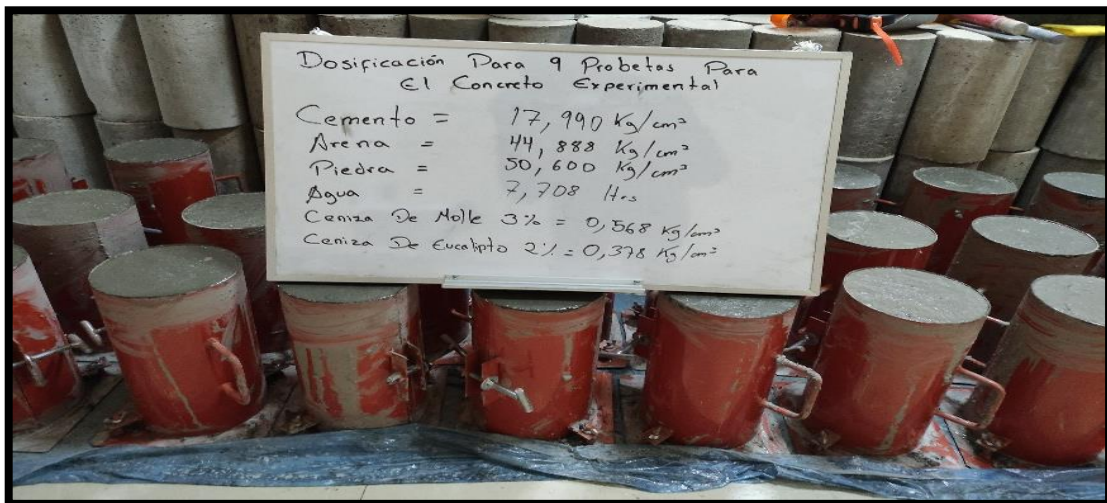 Dosificación Para 9 Probetas Para
El Concreto Experimental
Cemento = 17,990 Kg/cm³
Arena = 44,888 Kg/cm³
Piedra = 50,600 Kg/cm³
Agua = 7,708 ltrs
Ceniza De Molle 3% = 0,568 Kg/cm³
Ceniza De Eucalipto 2% = 0,378 Kg/cm³